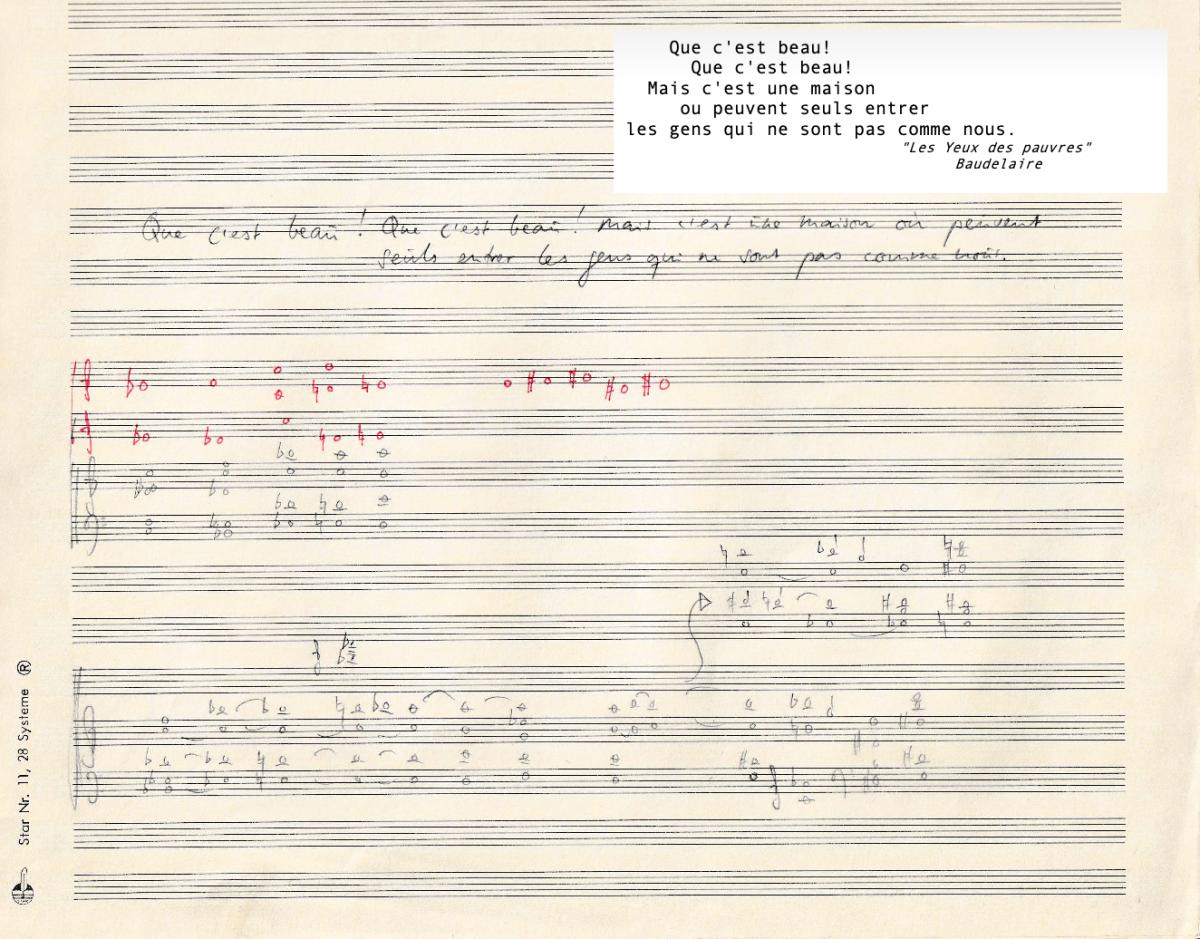 Que c'est beau!
Que c'est beau!
Mais c'est une maison
ou peuvent seuls entrer
les gens qui ne sont pas comme nous.
"Les Yeux des pauvres"
Baudelaire
Que c'est beau! Que c'est beau! Mais c'est une maison où peuvent
seuls entrer les gens qui ne sont pas comme nous.
Star Nr. 11, 28 Systeme ®